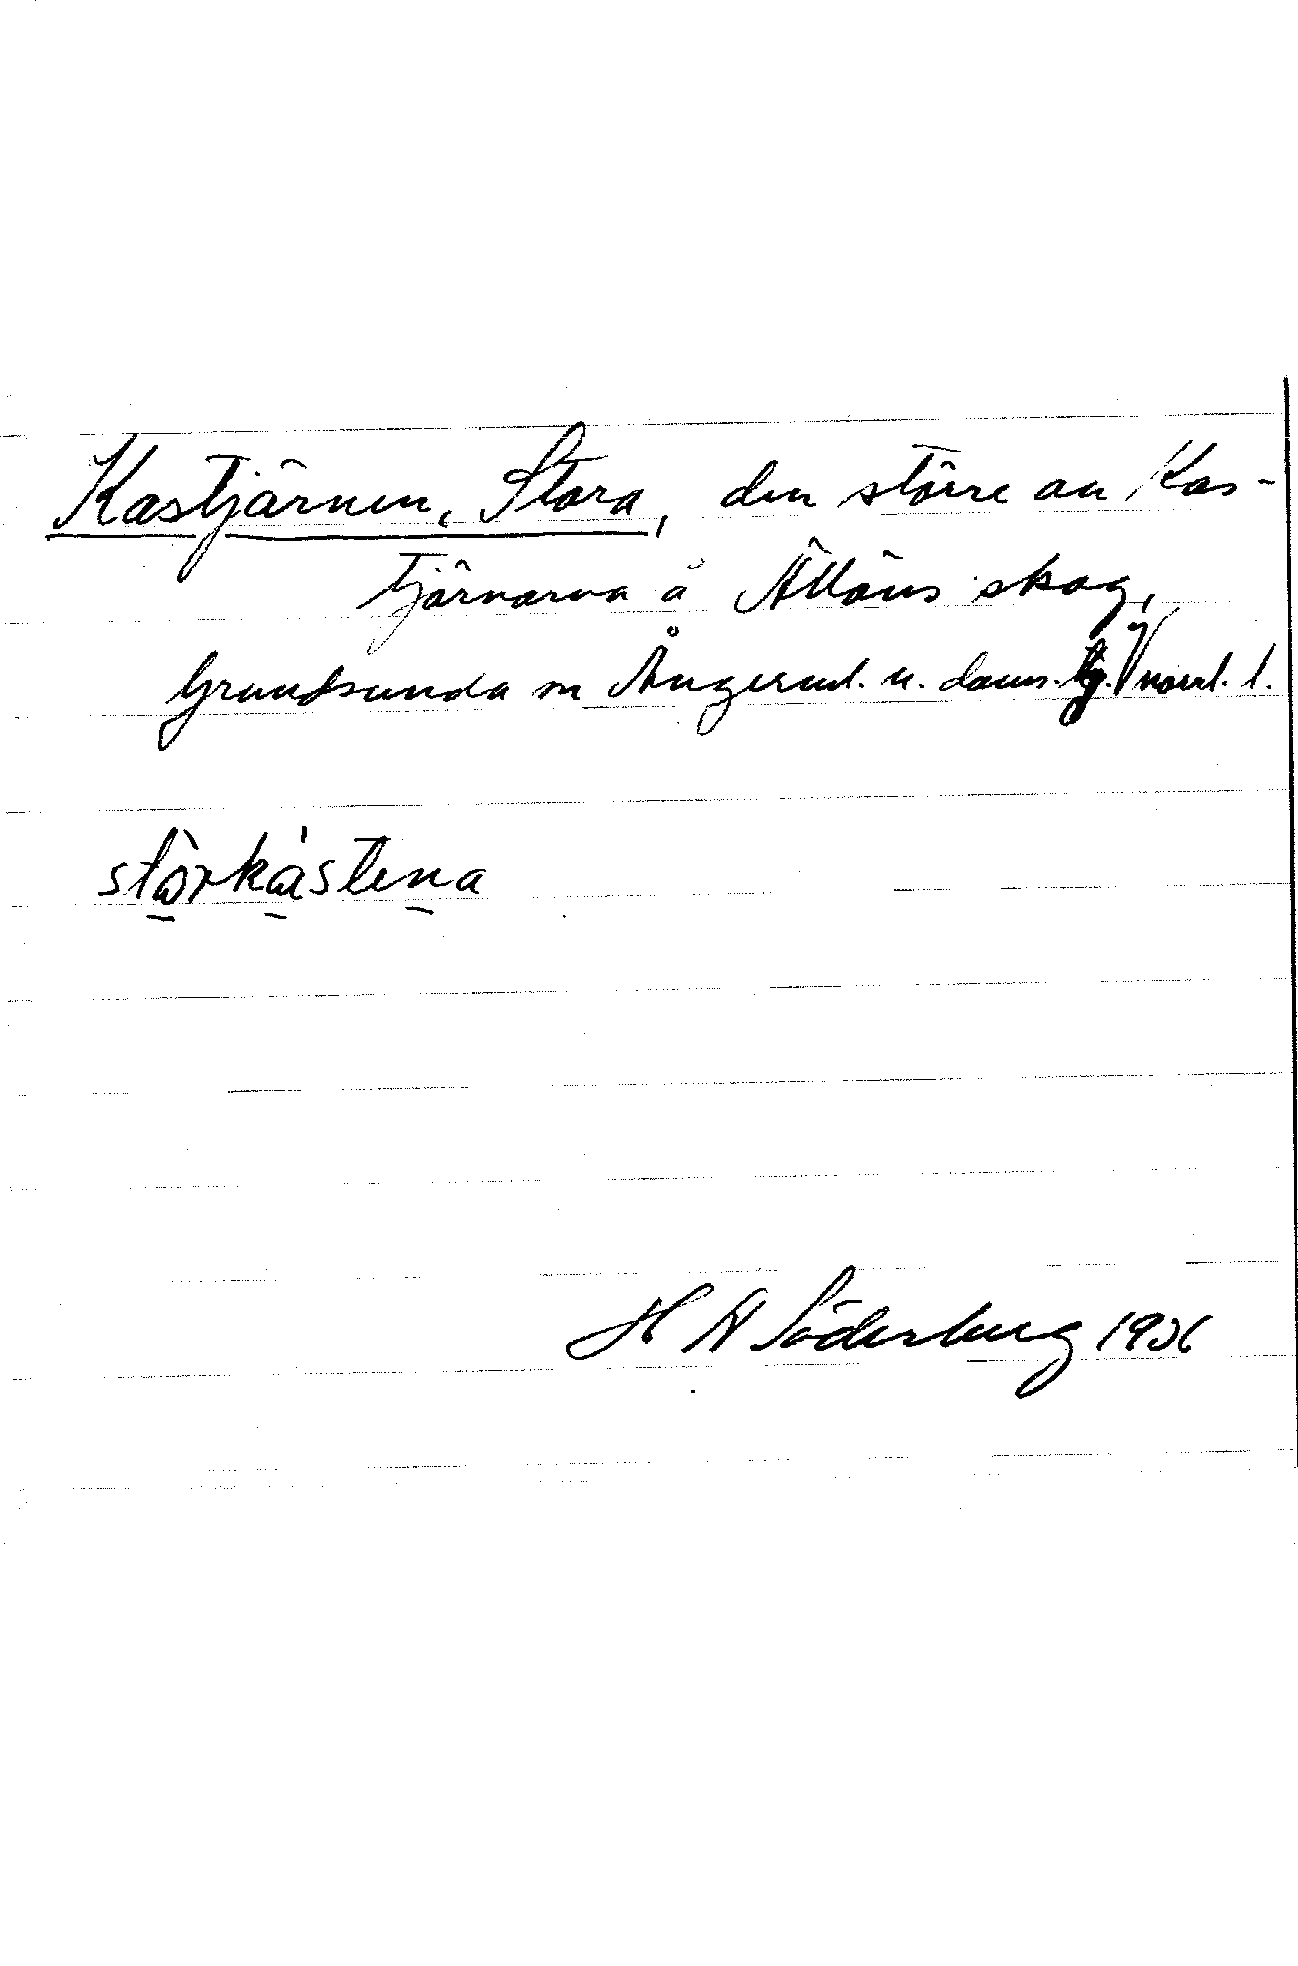 Kastjärnen, Stora, den större av Kas-
tjärnarna å Ällöns skog,
Grundsunda sn Ångerml. n. doms. tg. V norrl. l.
stòrkàstena
H W Söderberg 1936